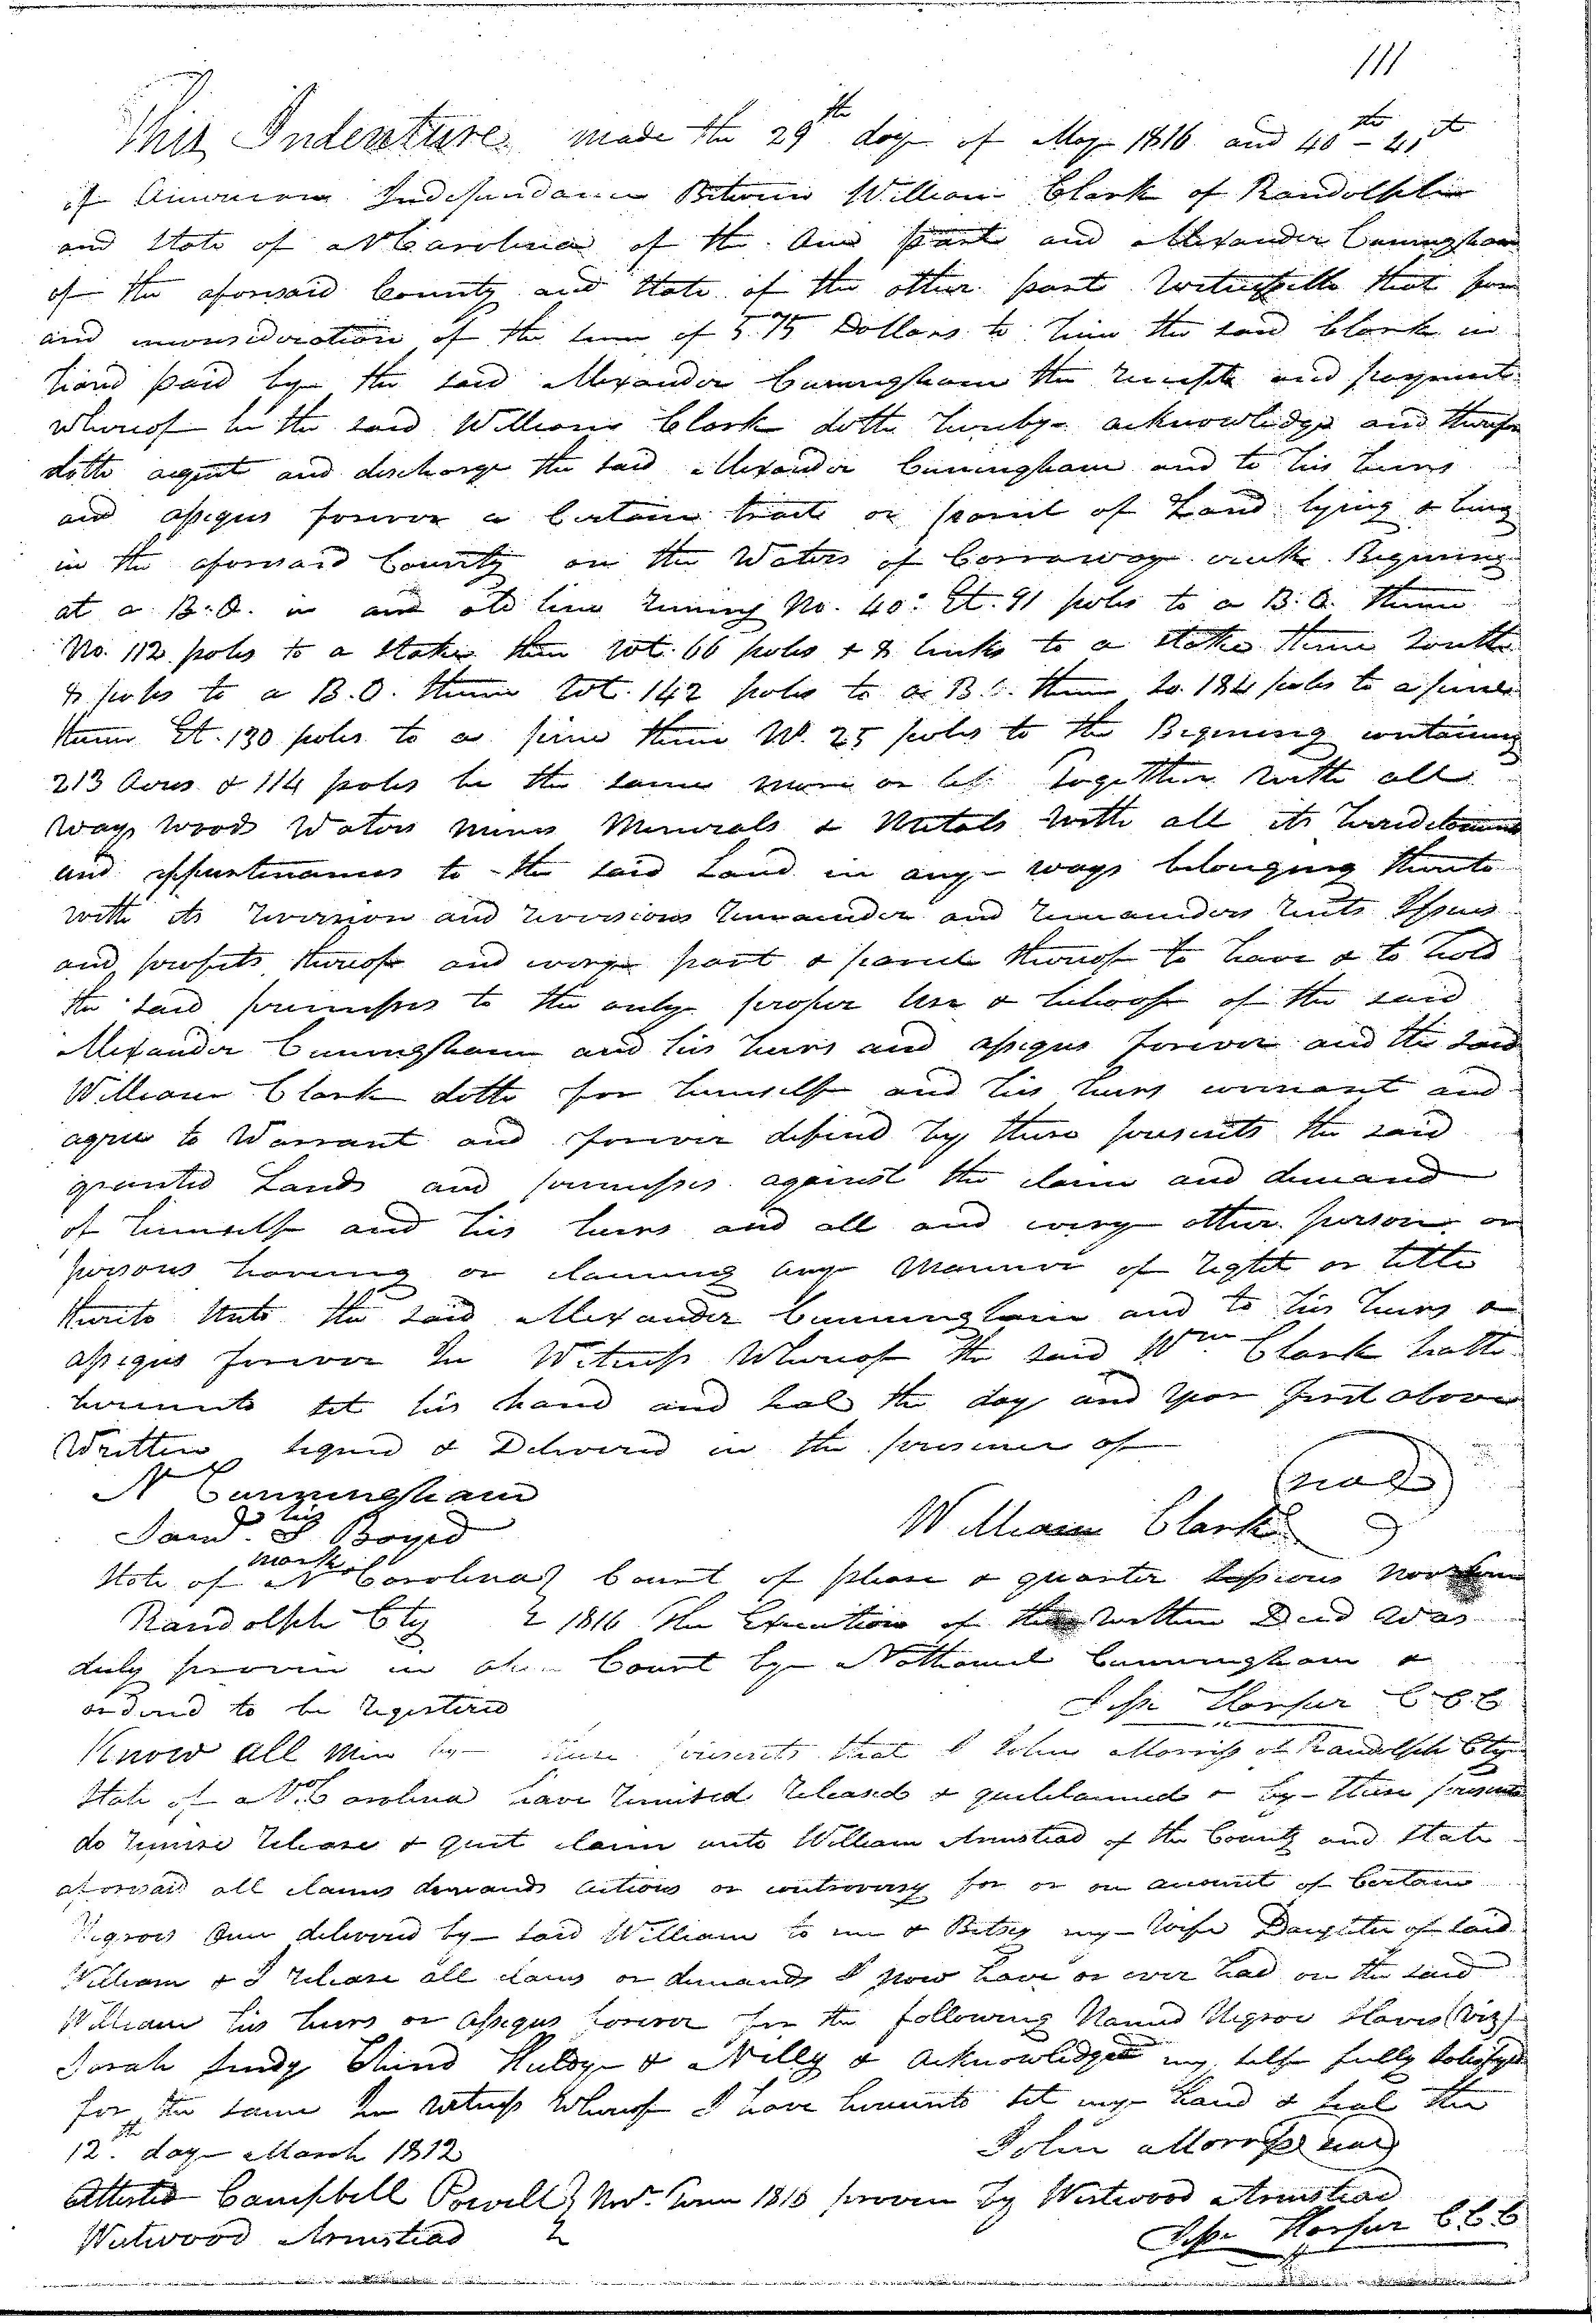 111
This Indenture made the 29th day of May 1816 and 40th - 41st
of American Independance Between William Clark of Randolph
and State of N Carolina of the one part and Alexander Cuningham
of the aforesaid County and State of the other part Witnesseth that for
and inconsideration of the sum of 575 Dollars to him the said Clark in
hand paid by the said Alexander Cuningham the receipt and payment
whereof he the said William Clark doth hereby acknowledge and thereof
doth acquit and discharge the said Alexander Cuningham and to his heirs
and assigns forever a Certain tract or parcel of Land lying & being
in the aforesaid County on the Waters of Carraway creek Begining
at a B.O. in an old line runing No. 40° Et. 91 poles to a B.O. thence
No. 112 poles to a stake then Wt. 66 poles & 8 links to a stake thence South
8 poles to a B.O. thence Wt. 142 poles to a B.O. thence So. 184 poles to a pine
thence Et. 130 poles to a pine thence N. 25 poles to the Begining containing
213 Acres & 114 poles be the same more or less Together with all
ways woods Waters mines Minerals & Metals with all its hereditaments
and appurtenances to the said Land in any ways belonging thereto
with its reversion and reversions remainder and remainders rents Issues
and profits thereof and every part & parcel thereof to have & to hold
the said premisses to the only proper Use & behoof of the said
Alexander Cuningham and his heirs and assigns forever and the said
William Clark doth for himself and his heirs covenant and
agree to Warrant and forever defend by these presents the said
granted Lands and premisses against the claim and demand
of himself and his heirs and all and every other person or
persons having or claming any Manner of right or title
thereto Unto the said Alexander Cunningham and to his heirs &
assigns forever In Witness Whereof the said Wm Clark hath
hereunto set his hand and seal the day and year first above
Written signed & Delivered in the presence of
N Cunningham
William Clark (seal)
his
Saml. S Boyed
mark
State of N Carolina } Court of pleas & quarter sessions Nov Term
Randolph Cty } 1816 The Execution of the within Deed was
duly proven in open Court by Nathaniel Cunningham &
ordered to be registered
Jesse Harper CCC
Know all Men by these presents that I John Morriss of Randolph Cty
State of N. Carolina have remised released & quitclaimed & by these presents
do remise release & quit claim unto William Armstead of the County and State
aforesaid all claims demands actions or controversy for or on account of Certain
Negroes ... delivered by said William to me & Betsey my Wife Daughter of said
William & I release all claims or demands I now have or ever had on the said
William his heirs or assigns forever for the following Named Negroe Slaves (viz)
Sarah ... Huldy & Milly & Acknowledged my self fully satisfyed
for the same In witness Whereof I have hereunto set my hand & seal the
12th day March 1812
John Morriss seal
Attested Campbell Powell } Nov. Term 1816 proven by Westwood Armstead
Westwood Armstead }
Jesse Harper CCC